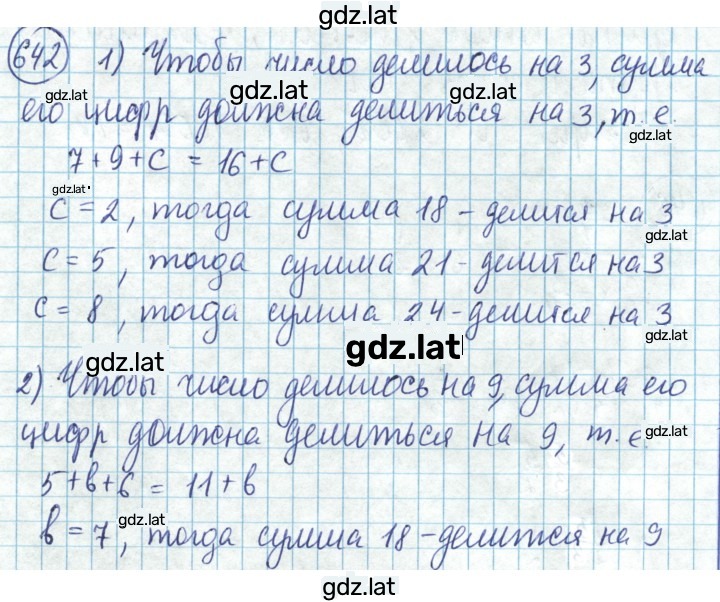 gdz.lat
642 1) Чтобы число делилось на 3, сумма
gdz.lat gdz.lat
его цифр должна делиться на 3, т. е.
gdz.lat
7+9+С = 16+С
gdz.lat
С=2, тогда сумма 18-делится на 3
gdz.lat
С=5, тогда сумма 21-делится на 3
С=8, тогда сумма 24-делится на 3
gdz.lat gdz.lat
2) Чтобы число делилось на 9, сумма его
gdz.lat
цифр должна делиться на 9, т. е.
5+в+6 = 11+в
gdz.lat
в=7, тогда сумма 18-делится на 9
gdz.lat